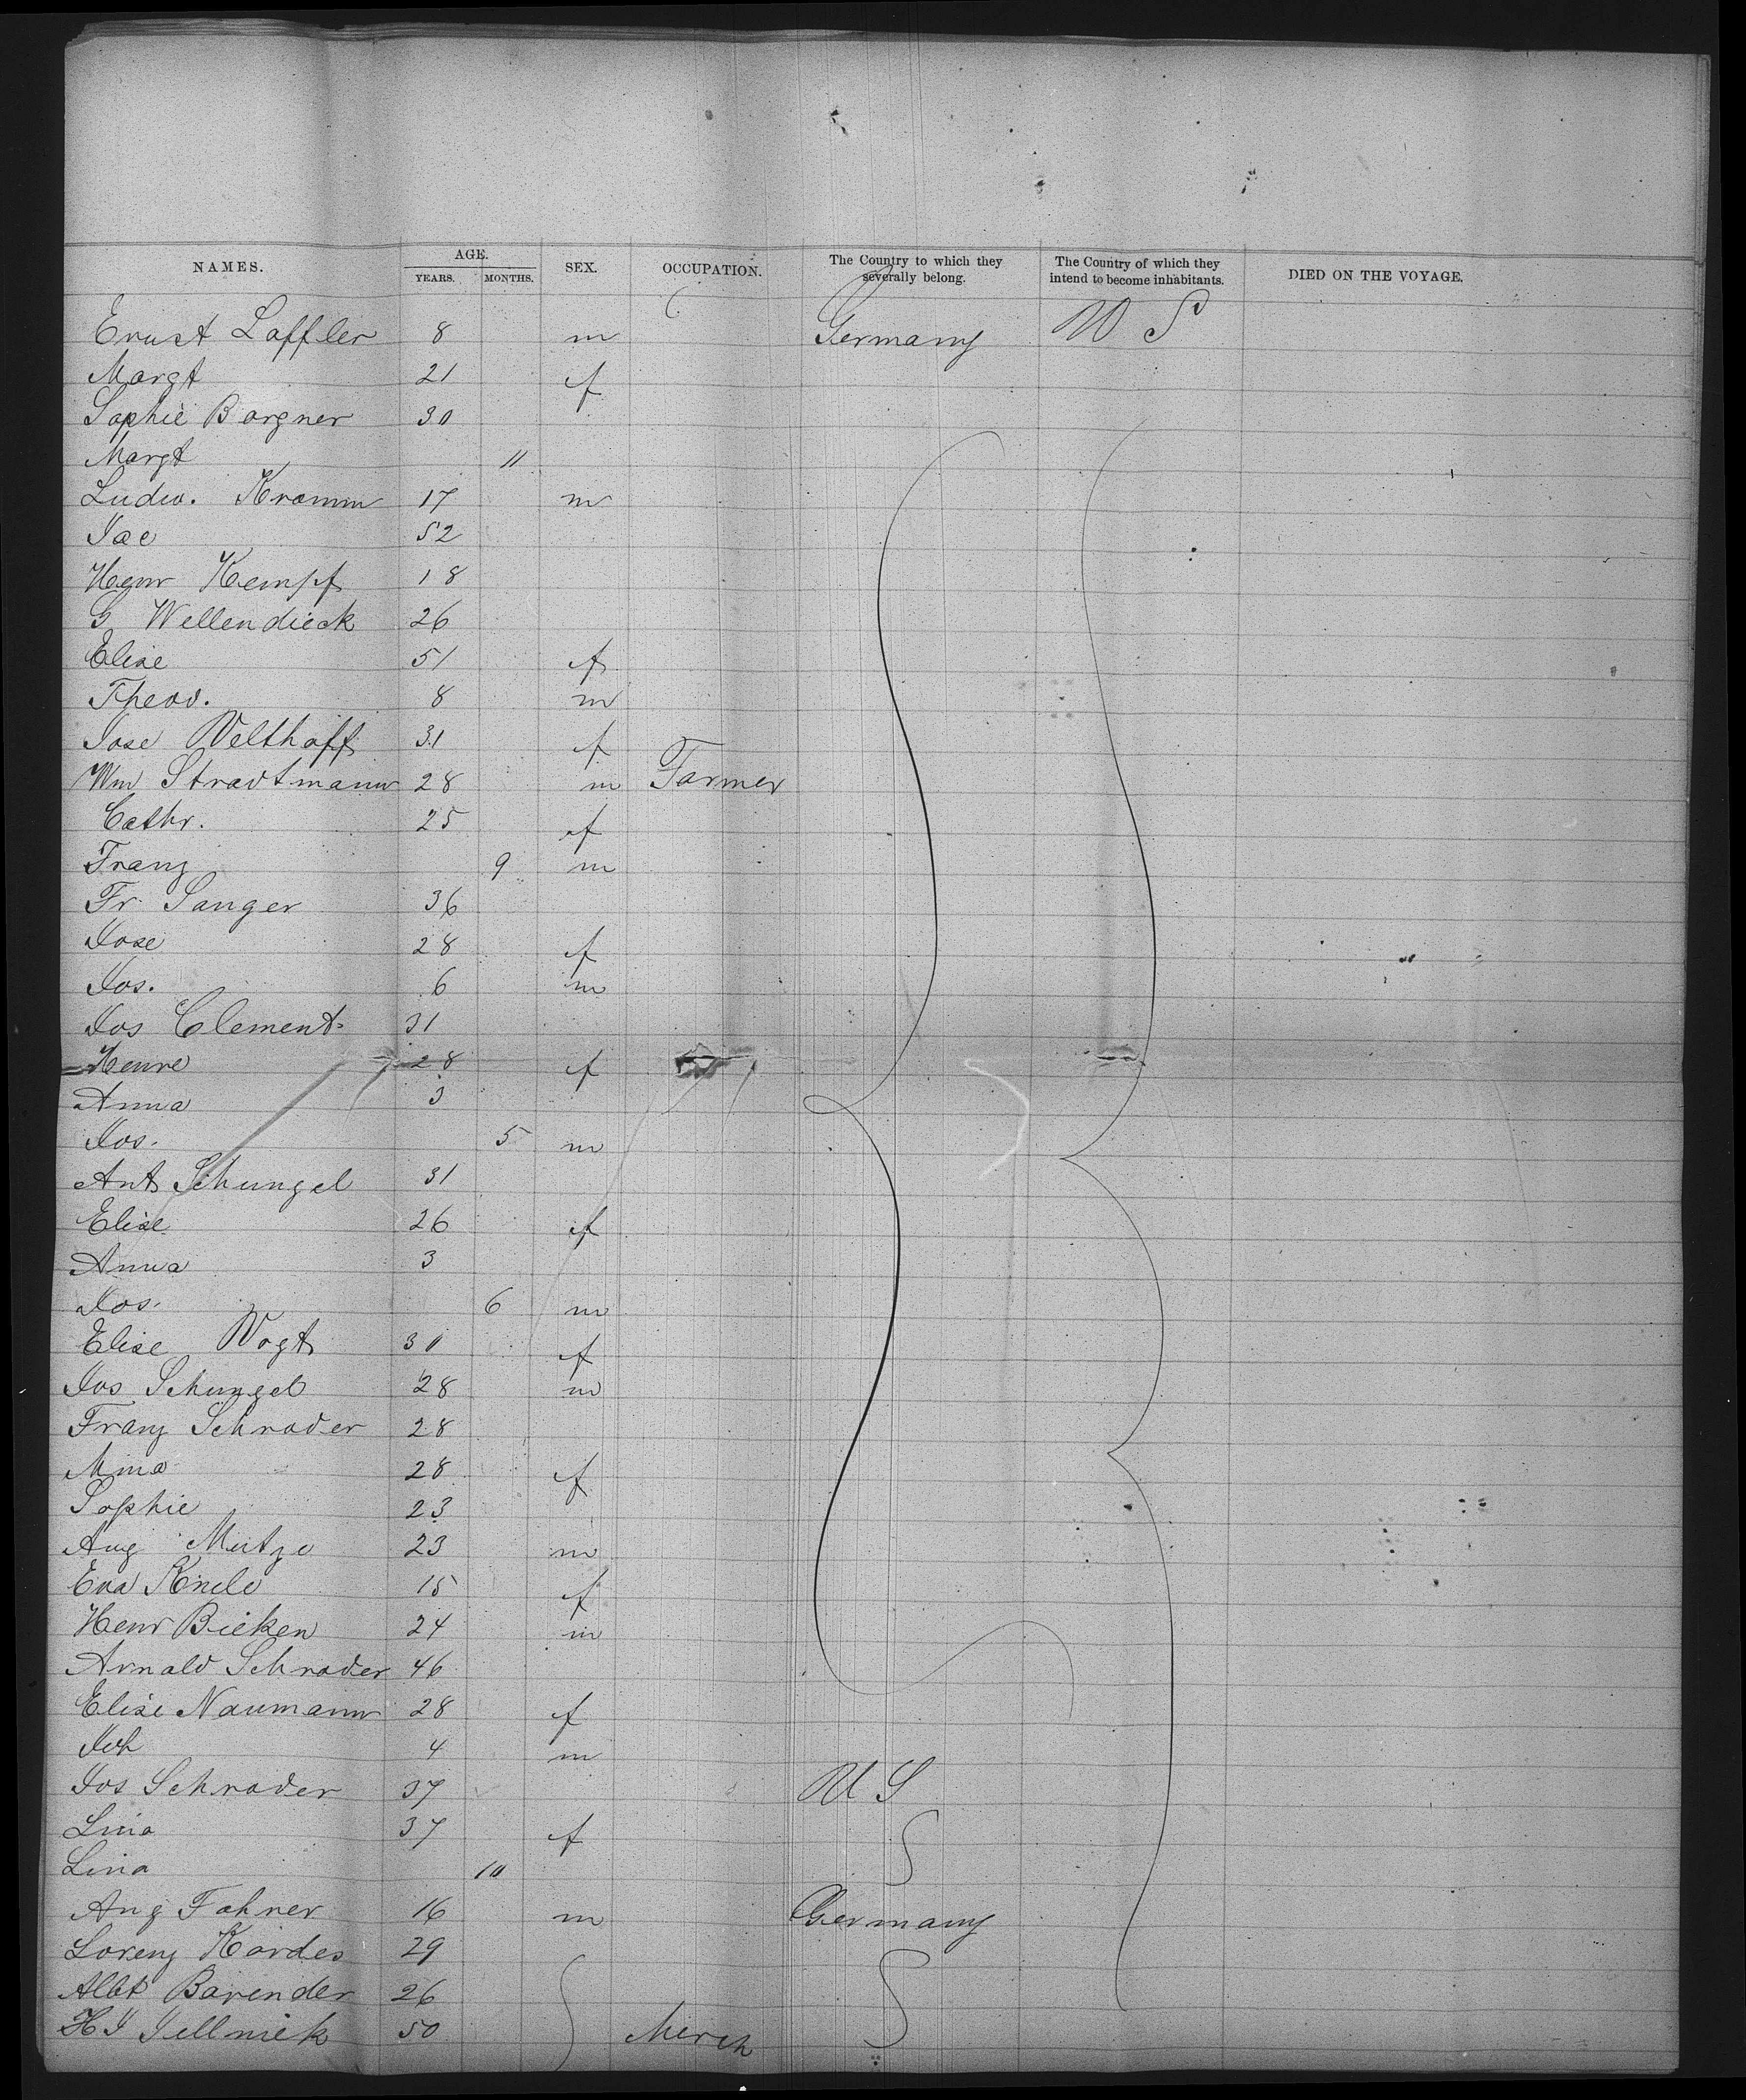 NAMES. AGE. SEX. OCCUPATION. The Country to which they severally belong. The Country of which they intend to become inhabitants. DIED ON THE VOYAGE.
YEARS. MONTHS.
Ernst Laffler 8 m Germany U S
Margt 21 f
Sophie Bargner 30
Margt 11
Ludw. Kramm 17 m
Jac 52
Henr Kempf 18
G Wellendieck 26
Elise 51 f
Theod. 8 m
Jose Velthoff 31 f
Wm Stradtmann 28 m Farmer
Cathr. 25 f
Franz 9 m
Fr. Sanger 36
Jose 28 f
Jos. 6 m
Jos Clement 31
Henre 28 f
Anna 3
Jos. 5 m
Ant Schungel 31
Elise 26 f
Anna 3
Jos. 6 m
Elise Vogt 30 f
Jos Schungel 28 m
Franz Schrader 28
Mina 28 f
Sophie 23
Aug Mutze 23 m
Eva 15 f
Henr Bieken 24 m
Arnald Schrader 46
Elise Naumann 28 f
Joh 4 m
Jos Schrader 37 U S
Lina 37 f
Lina 10
Aug Fahner 16 m Germany
Lorenz Kordes 29
Albt Barender 26
H J Jellniek 50 Merch